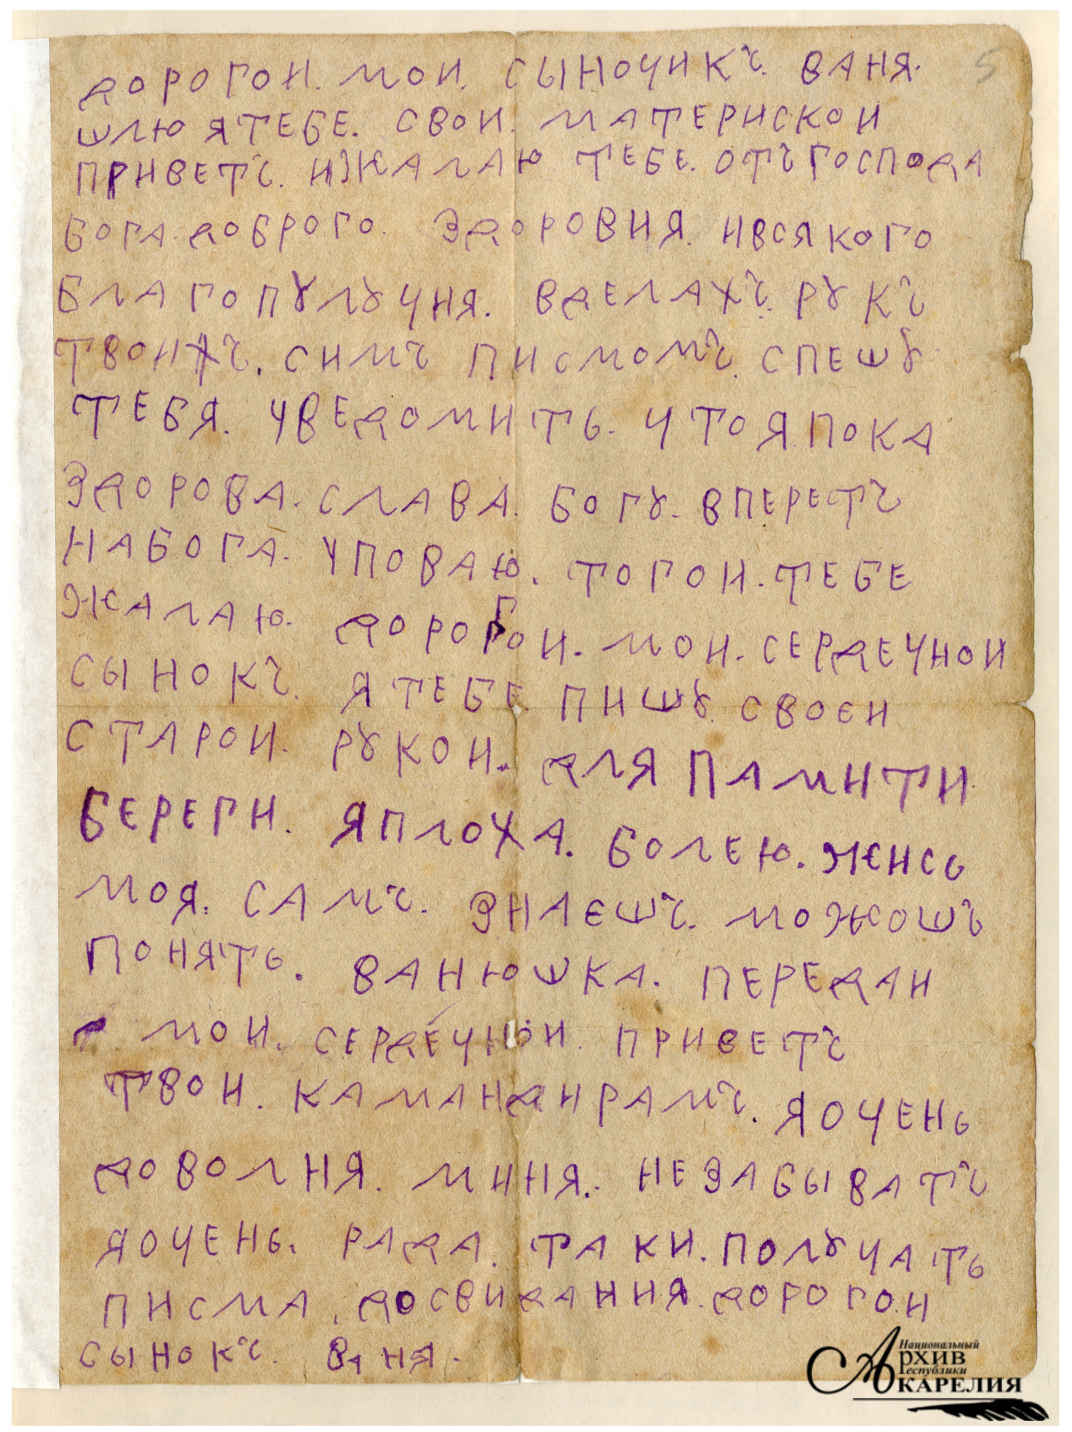 ДОРОГОИ. МОИ. СЫНОЧИКЪ. ВАНЯ.
5
ШЛЮ Я ТЕБЕ. СВОИ. МАТЕРИСКОИ
ПРИВЕТЪ. И ЖАЛАЮ ТЕБЕ. ОТЪ ГОСПОДА
БОГА. ДОБРОГО. ЗДОРОВИЯ. И ВСЯКОГО
БЛАГОПУЛУЧИЯ. В ДЕЛАХЪ. РУКЪ
ТВОИХЪ. СИМЪ ПИСМОМЪ. СПЕШУ
ТЕБЯ. УВЕДОМИТЬ. ЧТО Я ПОКА
ЗДОРОВА. СЛАВА. БОГУ. ВПЕРЕТЪ
НА БОГА. УПОВАЮ. ТОГОИ. ТЕБЕ
ЖАЛАЮ. ДОРОГОИ. МОИ. СЕРДЕЧНОИ
СЫНОКЪ. Я ТЕБЕ ПИШУ. СВОЕИ
СТАРОИ. РУКОИ. ДЛЯ ПАМИТИ
БЕРЕГИ. Я ПЛОХА. БОЛЕЮ. ЖЕНСЬ
МОЯ. САМЪ. ЗНАЕШЪ. МОЖОШЪ
ПОНЯТЬ. ВАНЮШКА. ПЕРЕДАИ
МОИ. СЕРДЕЧНОИ. ПРИВЕТЪ
ТВОИ. КАМАНДИРАМЪ. Я ОЧЕНЬ
ДОВОЛНЯ. МИНЯ. НЕ ЗАБЫВАТЪ
Я ОЧЕНЬ. РАДА. ТАКИ. ПОЛУЧАТЬ
ПИСМА. ДО СВИДАНИЯ. ДОРОГОИ
СЫНОКЪ. ВАНЯ.
Национальный
Архив
Республики
Карелия